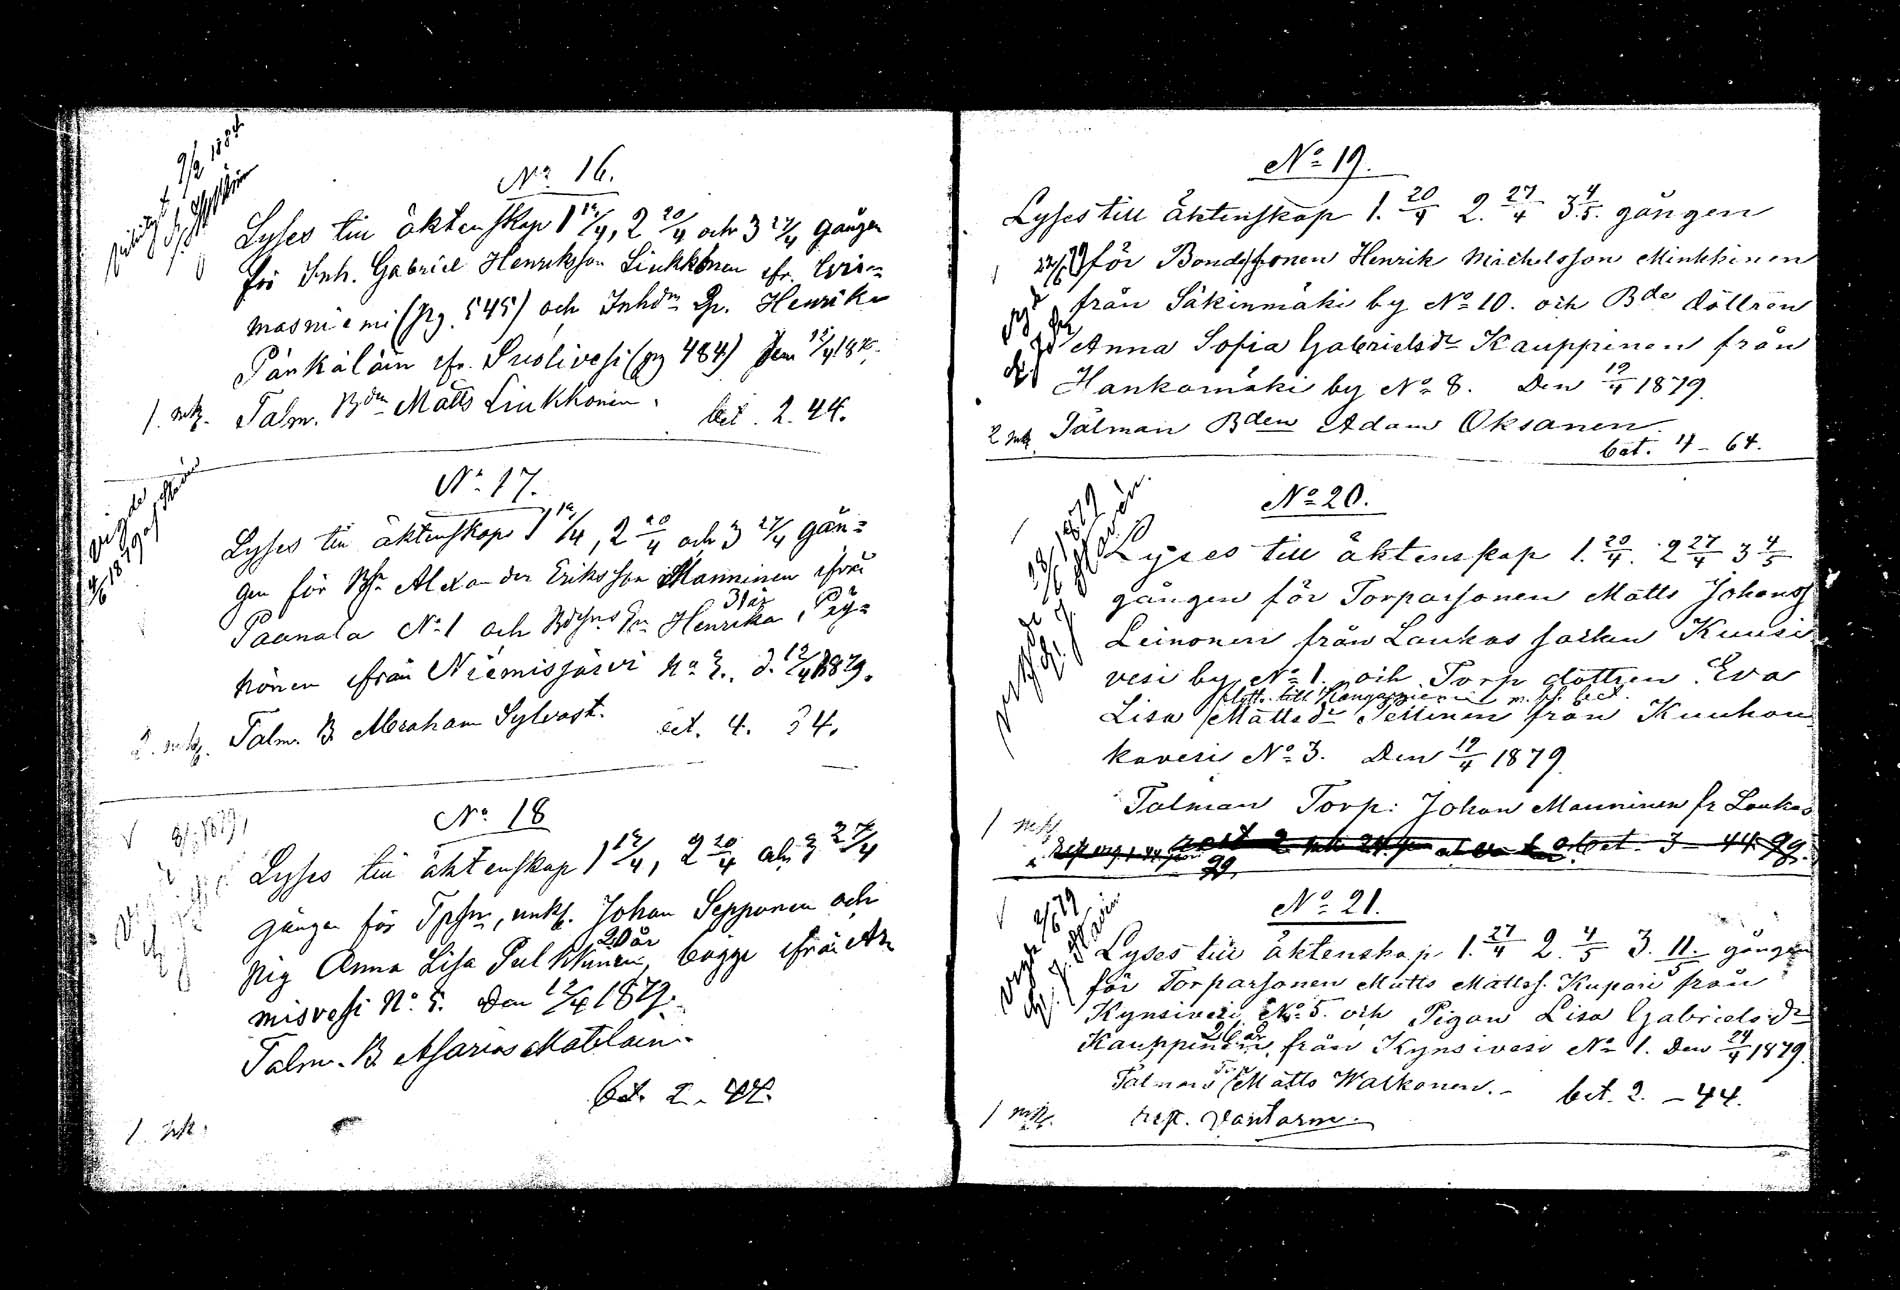 No 16.
9/2 1884
Lyses till äktenskap 1 14/4, 2 20/4 och 3 27/4 gången
för Inh. Gabriel Henriksson Liukkonen ifr.
masniemi (pg. 545) och Inhdn Henrika
Pänkäläin ifr. Suolivesi (pg 484) Den /4 18
1. mk. Talm. Bden Matts Liukkonen.
bet. 2. 44.
No 17.
vigde
4/6 1879 af
Lyses till äktenskap 1 /4, 2 20/4 och 3 27/4 gån=
gen för Alexander Eriksson Manninen ifrån
31 år
Paanala No 1 och Henrika Pöy=
hönen ifrån Niemisjärvi No d. 12/4 1879.
2. mk. Talm. B. Abraham Sylvast. bet. 4. 34.
No 18
1879
Lyses till äktenskap 1 12/4, 2 20/4 och 3 27/4
gången för Tpsn, unkl. Johan Sepponen och
20 år
pig Anna Lisa Pulkkinen, bägge ifrån Ar
misvesi No 5. Den 12/4 1879.
Talm. B. Asarias Matilain.
bet. 2. 44.
1. mk.
No 19.
Lyses till äktenskap 1. 20/4 2. 27/4 3. 4/5. gången
för Bondesonen Henrik Michelsson Minkkinen
från Säkinmäki by No 10. och Bde dottren
Anna Sofia Gabrielsdr Kauppinen från
Hankamäki by No 8. Den 19/4 1879.
2 mk. Talman Bden Adam Oksanen.
bet. 4 - 64.
No 20.
vigde 28/6 1879
Lyses till äktenskap 1. 20/4. 2 27/4 3 4/5
gången för Torparsonen Matts Johanss
Leinonen från Laukas socken Kuusi
vesi by No 1. och Torp dottren Eva
flytt. till Kangasniemi m. bet.
Lisa Mattsdr Tellinen från Kuuhan
kavesi No 3. Den 19/4 1879
Talman Torp: Johan Manninen fr Laukas
1 mk
bet. 3 - 44.
No 21.
vigde 2/6 79
Lyses till äktenskap 1. 27/4 2. 4/5 3. 11/5 gången
för Torparsonen Matts Mattss. Kupari från
Kynsivesi No 5. och Pigan Lisa Gabrielsdr
26 år
Kauppinen, från Kynsivesi No 1. Den 24/4 1879.
Talman Matts Walkonen. - bet. 2. - 44.
1 mk.